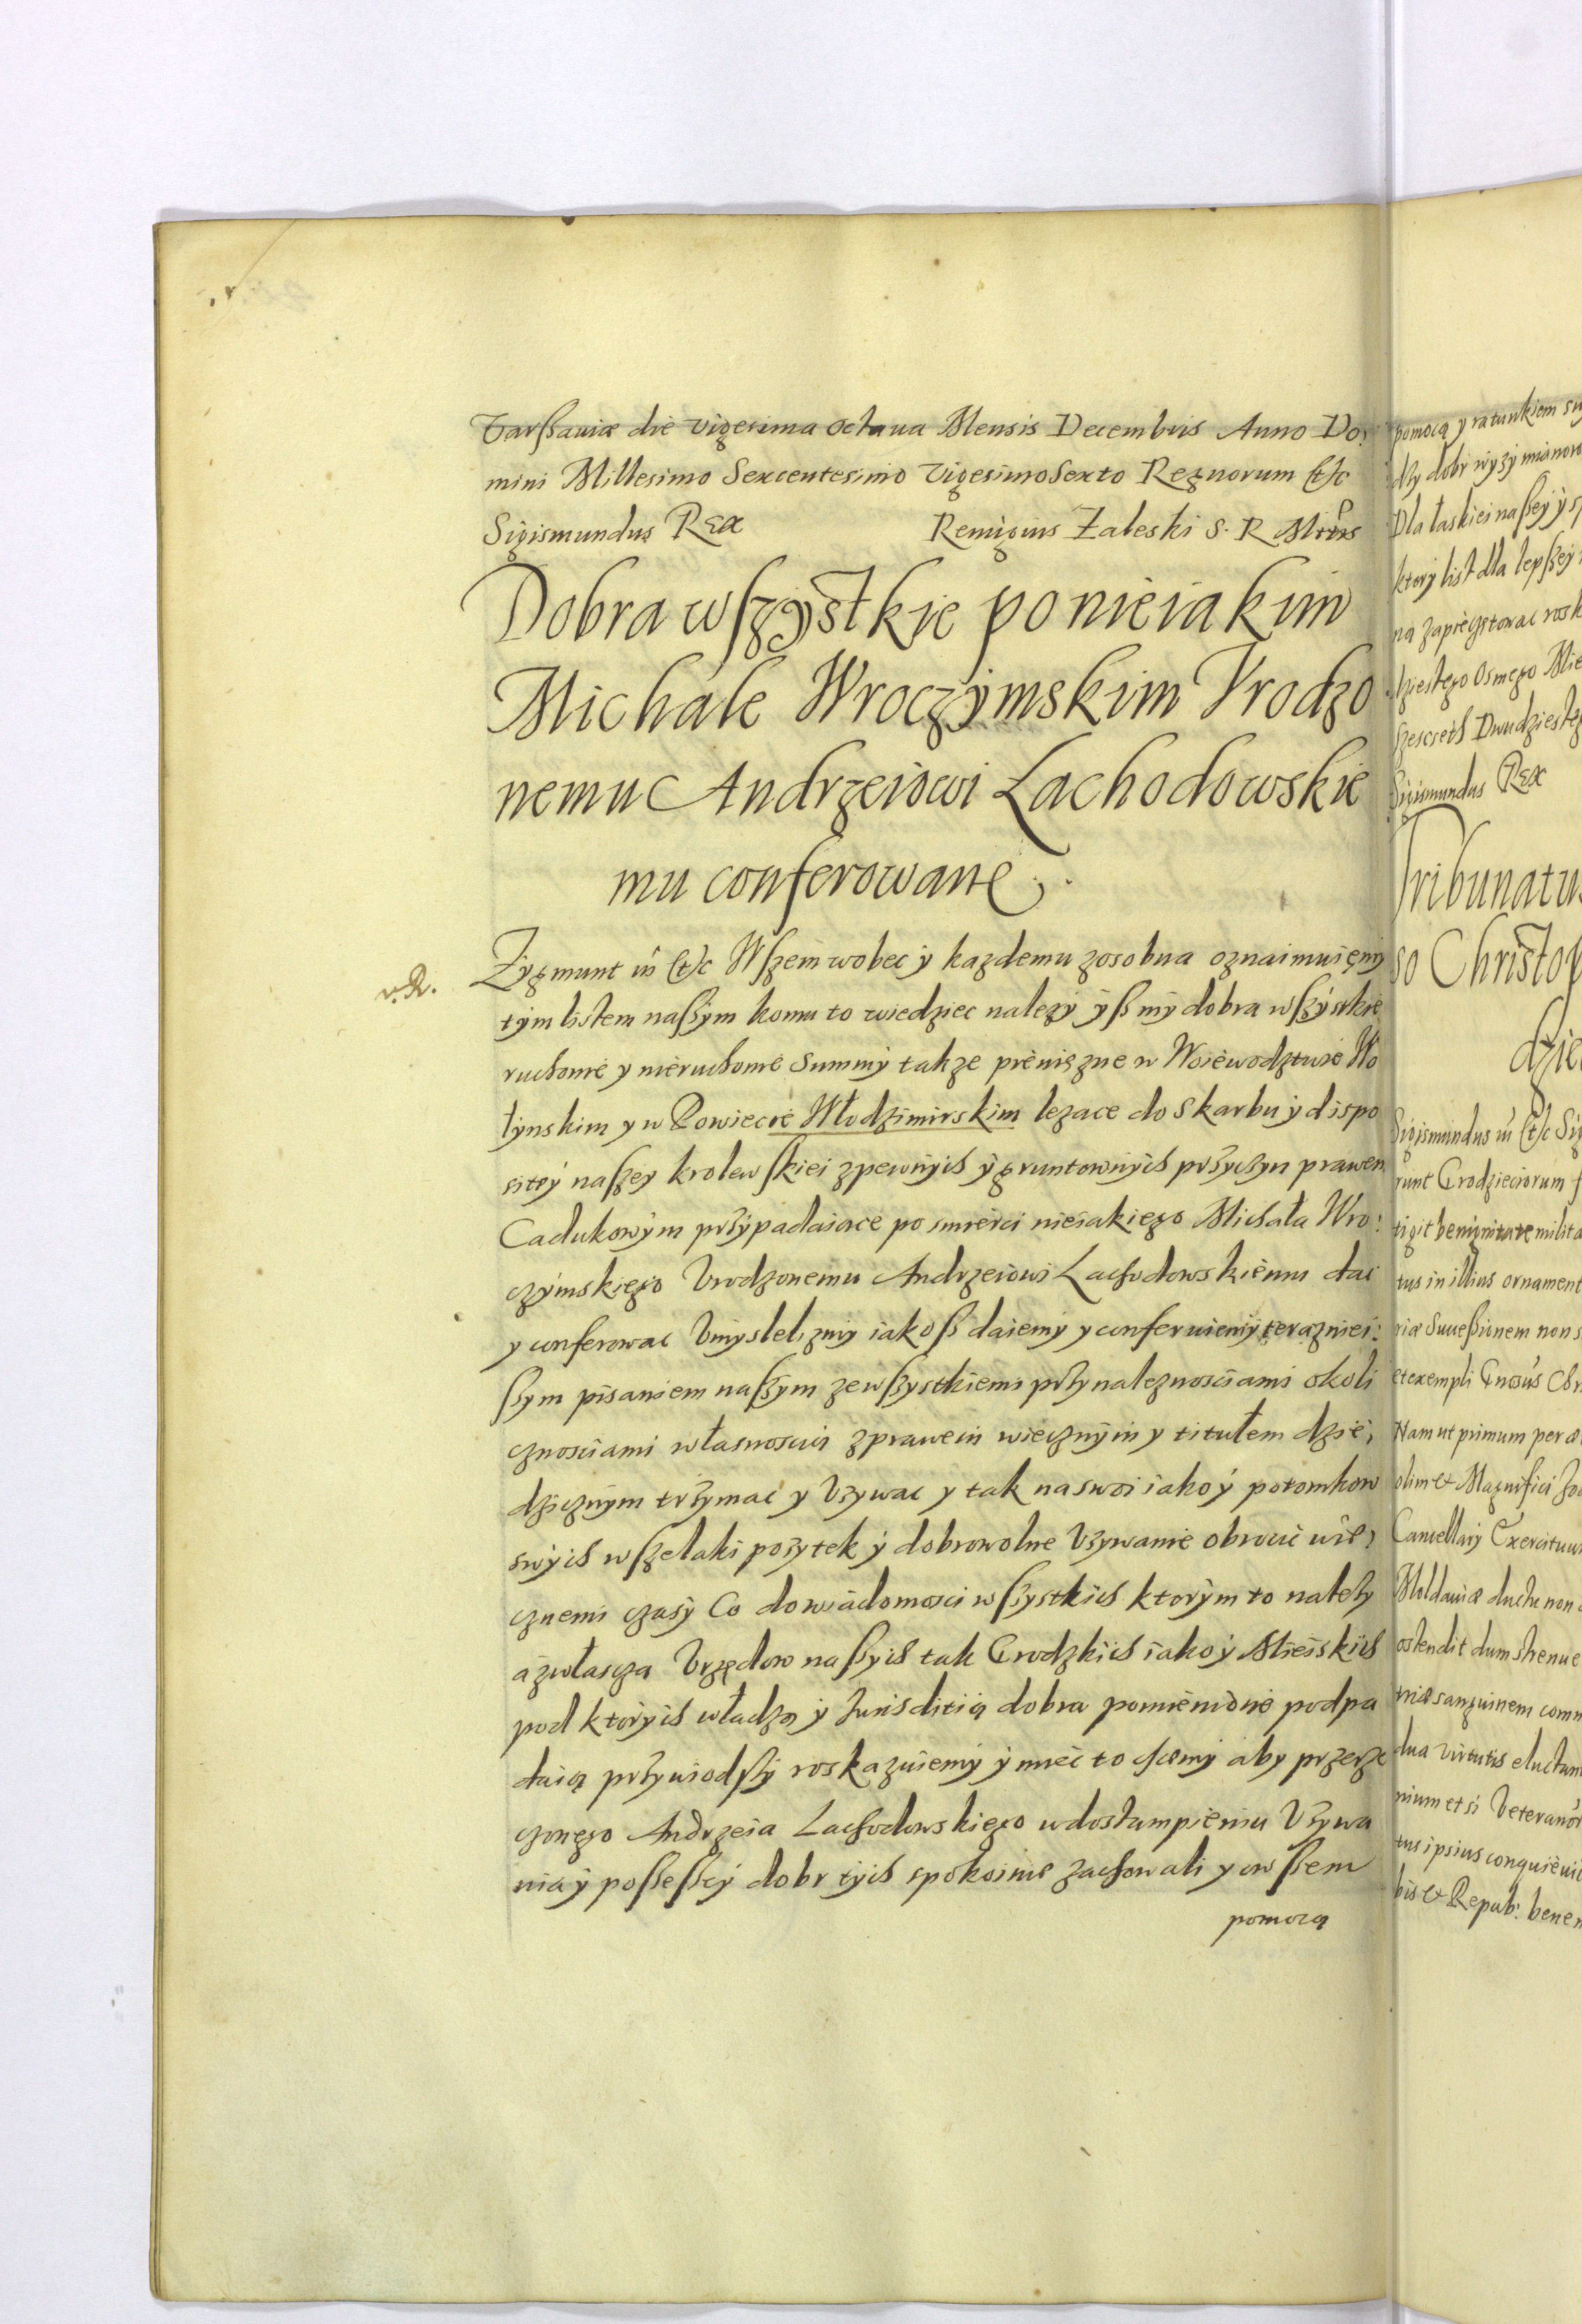 Varsaviæ die vigesima octaua Mensis Decembris Anno Do:
mini Millesimo Sexcentesimo VigesimoSexto Regnorum etc
Sigismundus Rex Remigius Zaleski S. R Mtis
Dobra wszystkie po nieiakim
Michale Wroczymskim Vrodzo
nemu Andrzeiowi Lachodowskie
mu conferowane.
v. R.
Zygmunt iii etc Wszem wobec y kazdemu zosobna oznaimuięmy
tym listem naszym komu to wiedziec nalezy yszmy dobra wszystkie
ruchome y nieruchome Summy takze pienięzne w Woiewodztwie Wo
łynskim y w Powiecie Włodzimirskim lezace do Skarbu y dispo
sitiy naszey krolewskiei z pewnych y gruntownych przyczyn prawem
Cadukowym przypadaiące po smierci nieiakiego Michała Wro:
czymskiego Vrodzonemu Andrzeiowi Lachodowskiemu dac
y conferowac Vmyslelizmy iakosz daiemy y conferuiemy terazniei:
szym pisaniem naszym ze wszystkiemi przynaleznosciami okoli
cznosciami własnoscią z prawem wiecznym y titułem dzie:
dzicznym trzymac y Vzywac y tak na swoi iako y potomkow
swych wszelaki pozytek y dobrowolne Vzywanie obrocic wie:
cznemi czasy Co do wiadomosci wszystkich ktorym to nalezy
a zwłascza Vrzędow naszych tak Grodzkich iako y Mieiskich
pod ktorych władzą y Iurisditią dobra pomienione podpa
daią przywiodszy roskazuiemy y miec to chcemy aby przerze
czonego Andrzeia Lachodowskiego w dostąmpieniu Vzywa
nia y possessiy dobr tych spokoinie zachowali y owszem
pomocą
pomocą y ratunkiem
dzy dobr wyzy mianowa
Dla łaskiei naszey y
ktory list dla lepszey
na zapieczętowac rosk
dziestego Osmego Mie
szescseth Dwudziesteg
Sigismundus Rex
Tribunatus
so Christop
dzie
Sigismundus iii etc
runt Grodzieciorum
tigit benignitate milita
tus in illius ornament
riæ Successionem non
et exempli Gnosus Chr
Nam ut primum per
olim et Magnifici
Cancellarij Exercituum
Moldauiæ ductu non
ostendit dum strenue
triæ sanguinem comm
dua Virtutis eluctam
nium etsi Veteranor
tus ipsius conquieuit
bis et Repub: bene